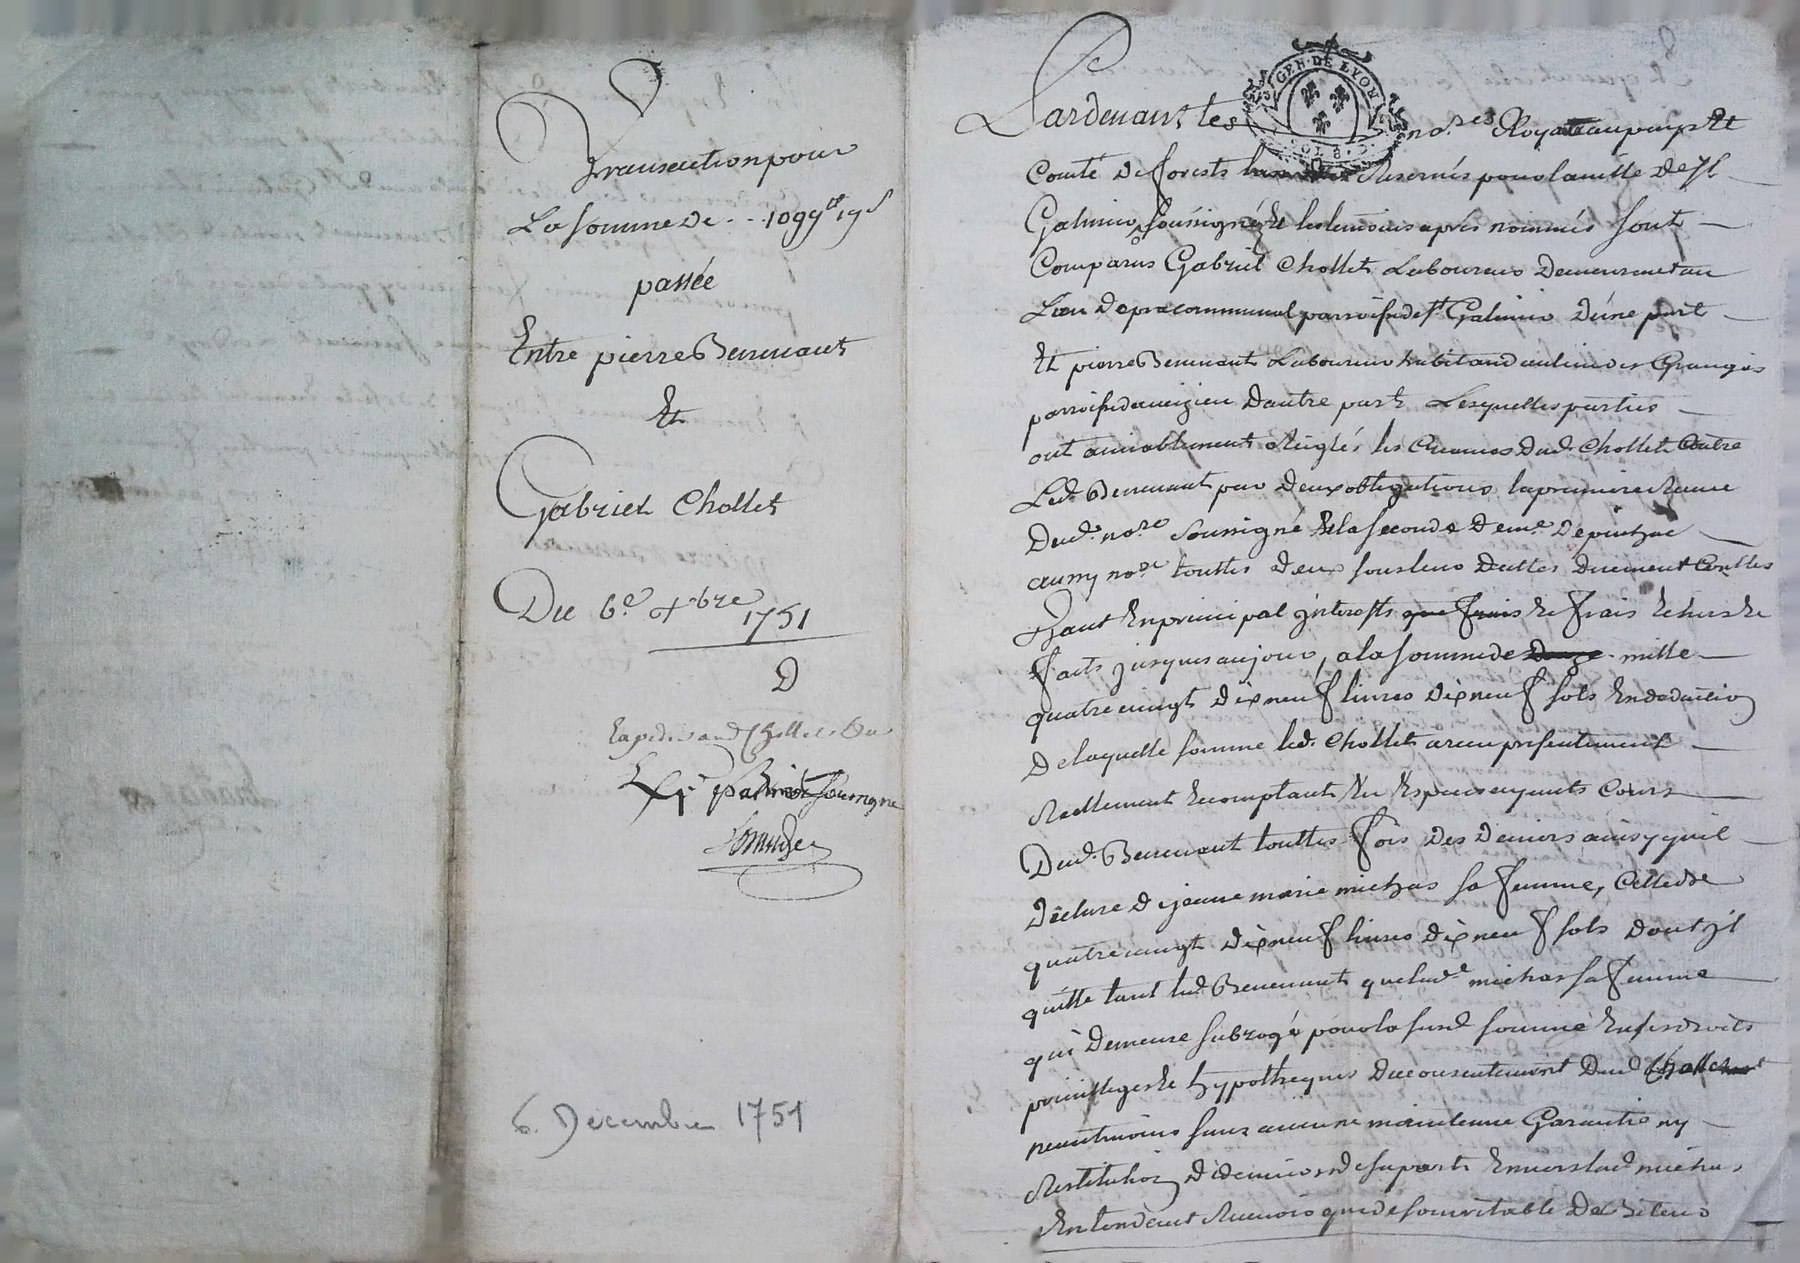 Transaction pour
La somme de - - 1099lt 19s
passée
Entre pierre Benevant
Et
Gabriel Chollet
Du 6e xbre 1751
D
Expédié aud Chollet
soussigné
6. Decembre 1751
GEN. DE LYON
Pardevant les no.res Royaux au pays Et
Comté de forests Reservés pour la ville de St
Galmier soussignés Et les temoins aprés nommés sont
Comparus Gabriel Chollet Laboureur demeurant au
Lieu de pra communal parroisse de st Galmier d'une part
Et pierre Benevant Laboureur habitand au lieu des Granges
parroisse daveizieu d'autre part Lesquelles parties
ont amiablement Reiglés les Creances dud. Chollet Contre
Led. Benevant par deux obligations la premiere Receue
Dud. no.re soussigné Et la seconde de me. depuitzac
aussy no.re touttes deux sous leur dattes duement Conttes
Et ce En principal interests que frais Et frais
faits jusques aujour, a la somme de douze mille
quatre vingt dix neuf livres dix neuf sols En deduction
De laquelle somme led. Chollet a reçu presentement
Reellement Et comptant En Especes ayants Cours
Dud. Benevant touttes fois des deniers ainsy quil
Déclare de jeanne marie michas sa femme, Celle de
quatre vingt dix neuf livres dix neuf sols dont il
quitte tant led. Benevant que lade michas sa femme
qui demeure subrogé pour la susd somme En ses droits
privilleges Et hypotheques du consentement dud Chollet
neantmoins sans aucune maintenue Garantie ny
Restitution de deniers de sa part Envers lad michas
Entendant